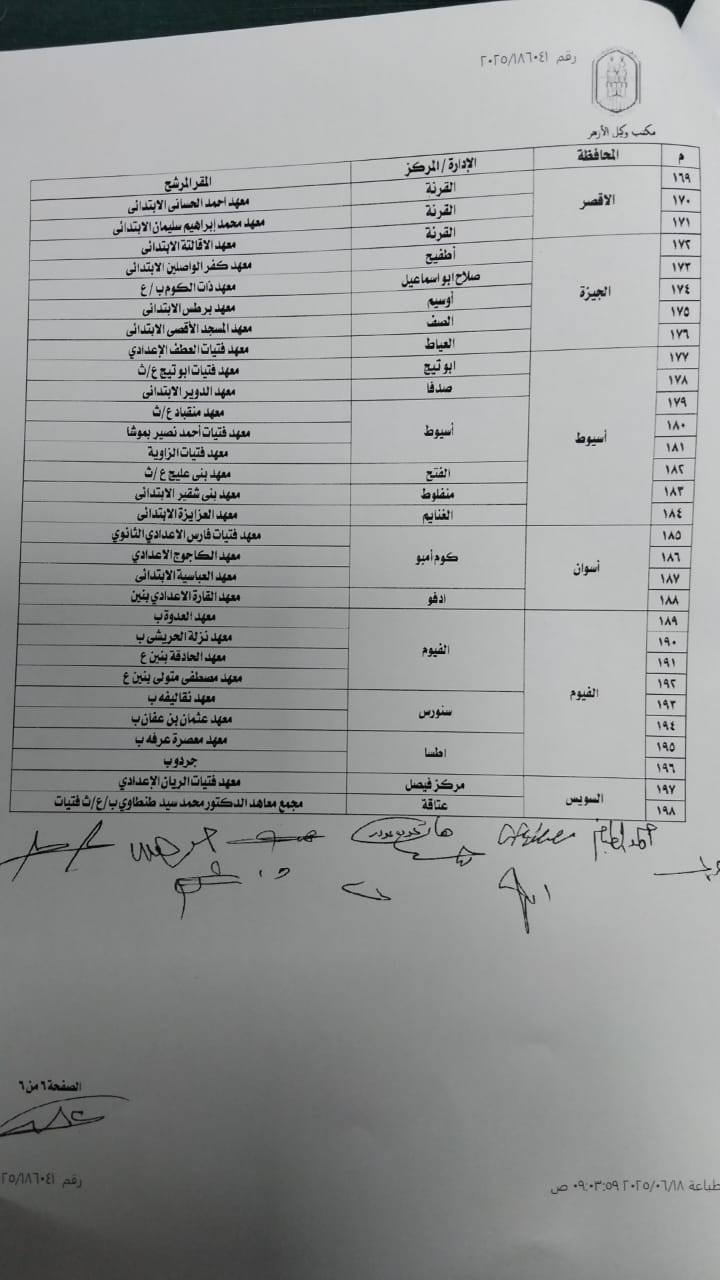 رقم ٢٠٢٥/١٨٦٠٤١
مكتب وكيل الأزهر
م المحافظة الإدارة/المركز المقر المرشح
١٦٩ الاقصر القرنة معهد احمد الحسانى الابتدائى
١٧٠ القرنة معهد محمد إبراهيم سليمان الابتدائى
١٧١ القرنة معهد الاقالتة الابتدائى
١٧٢ الجيزة أطفيح معهد كفر الواصلين الابتدائى
١٧٣ صلاح ابو اسماعيل معهد ذات الكوم ب/ع
١٧٤ أوسيم معهد برطس الابتدائى
١٧٥ الصف معهد المسجد الأقصى الابتدائى
١٧٦ العياط معهد فتيات العطف الإعدادي
١٧٧ أسيوط ابو تيج معهد فتيات ابو تيج ع/ث
١٧٨ صدفا معهد الدوير الابتدائى
١٧٩ أسيوط معهد منقباد ع/ث
١٨٠ معهد فتيات أحمد نصير بموشا
١٨١ معهد فتيات الزاوية
١٨٢ الفتح معهد بنى عليج ع/ث
١٨٣ منفلوط معهد بنى شقير الابتدائى
١٨٤ الغنايم معهد العزايزة الابتدائى
١٨٥ أسوان كوم أمبو معهد فتيات فارس الاعدادي الثانوي
١٨٦ معهد الكاجوج الاعدادي
١٨٧ معهد العباسية الابتدائى
١٨٨ ادفو معهد القارة الاعدادي بنين
١٨٩ الفيوم الفيوم معهد العدوة ب
١٩٠ معهد نزلة الحريشى ب
١٩١ معهد الحادقة بنين ع
١٩٢ معهد مصطفى متولى بنين ع
١٩٣ سنورس معهد نقاليفه ب
١٩٤ معهد عثمان بن عفان ب
١٩٥ اطسا معهد معصرة عرفه ب
١٩٦ جردوب
١٩٧ السويس مركز فيصل معهد فتيات الريان الإعدادي
١٩٨ عتاقة مجمع معاهد الدكتور محمد سيد طنطاوي ب/ع/ث فتيات
الصفحة ٦ من ٦
طباعة ٢٠٢٥/٠٦/١٨ ٠٩:٠٣:٥٩ ص
رقم ٢٥/١٨٦٠٤١